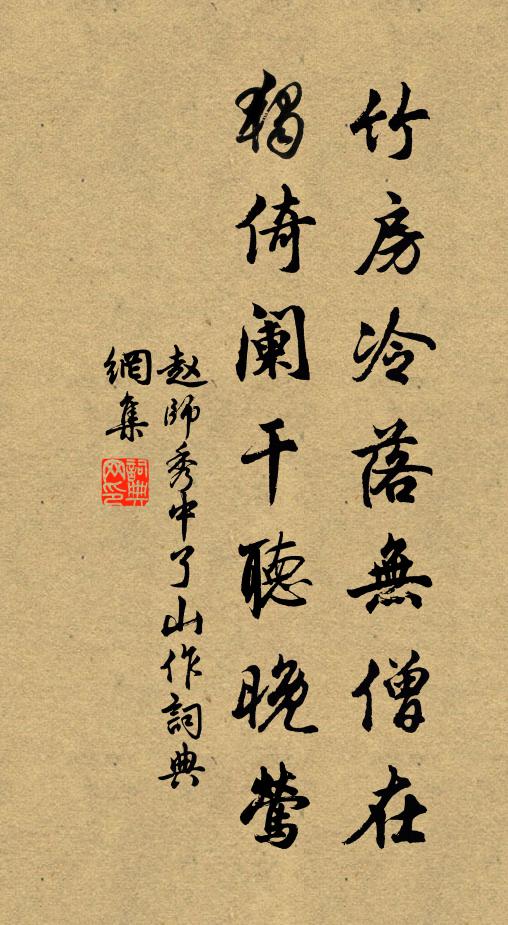 竹房冷落無僧在
獨倚闌干聽晚鶯
赵師秀中了山作詞典
網集
詞典網印